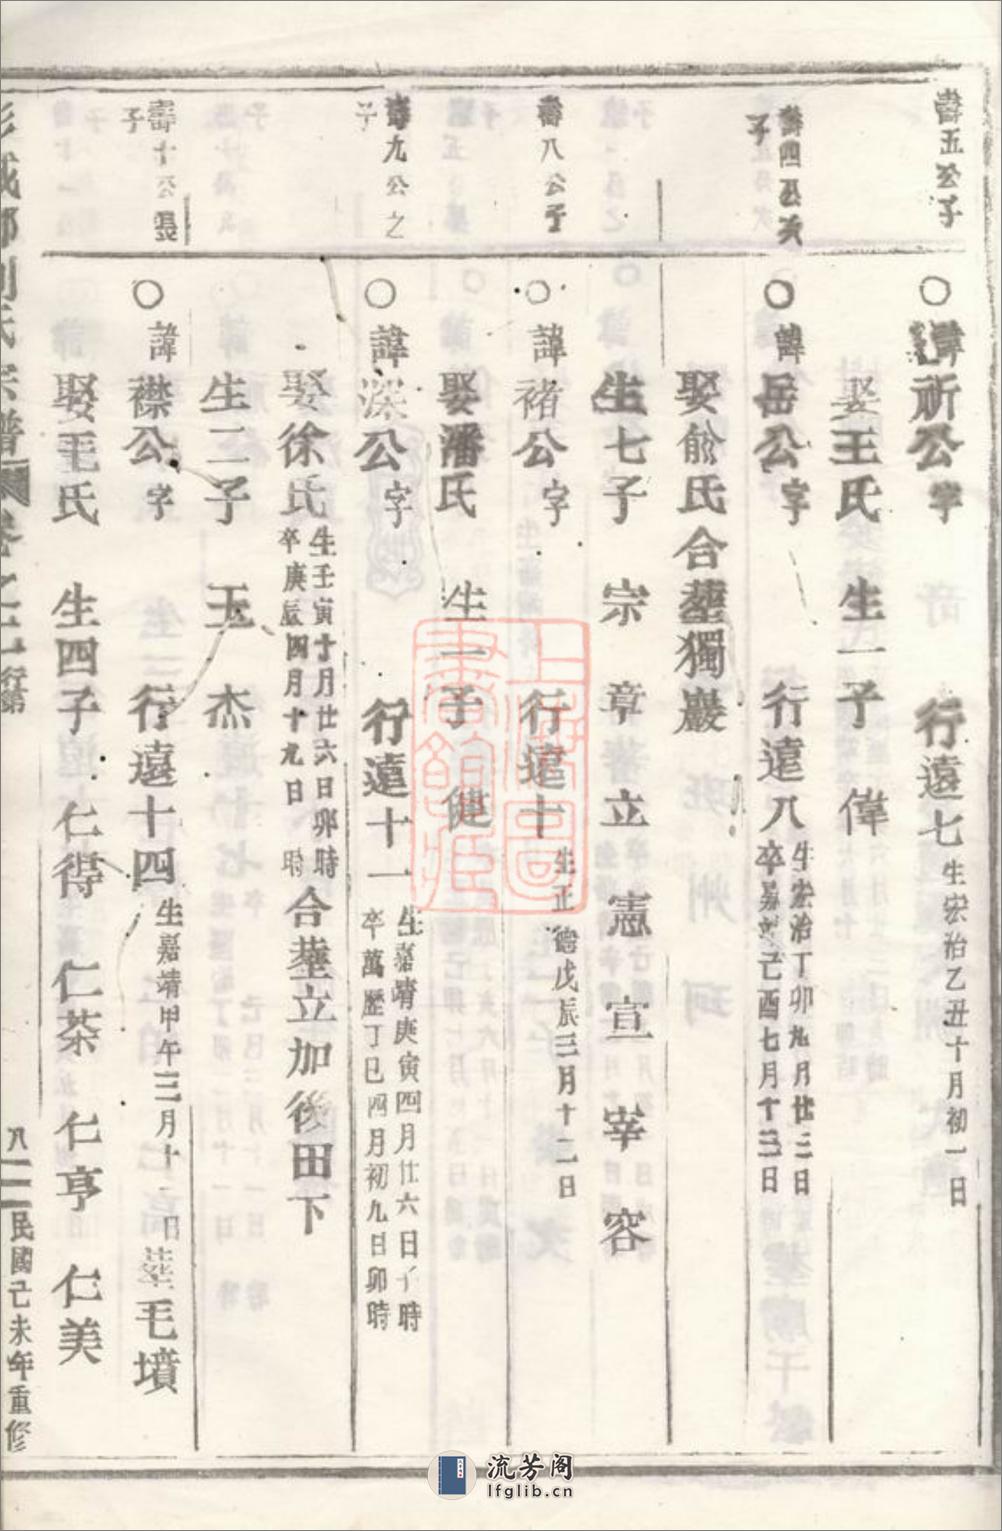 壽五公子
○諱祈公字 行遠七 生宏治乙丑十月初一日
娶王氏 生一子 偉
壽四公次子
○諱岳公字 行遠八 生宏治丁卯九月廿三日
卒嘉靖己酉七月十三日
娶俞氏合塟獨巖
生七子 宗 章 立 憲 宣 宰 容
壽八公子
○諱褚公字 行遠十 生正德戊辰三月十二日
娶潘氏 生一子 健
壽九公之子
○諱深公字 行遠十一 生嘉靖庚寅四月廿六日子時
卒萬歷丁巳四月初九日卯時
娶徐氏 生壬寅十月廿六日卯時
卒庚辰四月十九日 時
合塟立加後田下
生二子 玉 杰
壽十公長子
○諱襟公字 行遠十四 生嘉靖甲午三月十一日
塟毛墳
娶毛氏 生四子 仁得 仁茶 仁亨 仁美
彭城郡劉氏宗譜 卷之二 行第 八二 民國己未年重修
上海圖書館藏
流芳阁
lfglib.cn